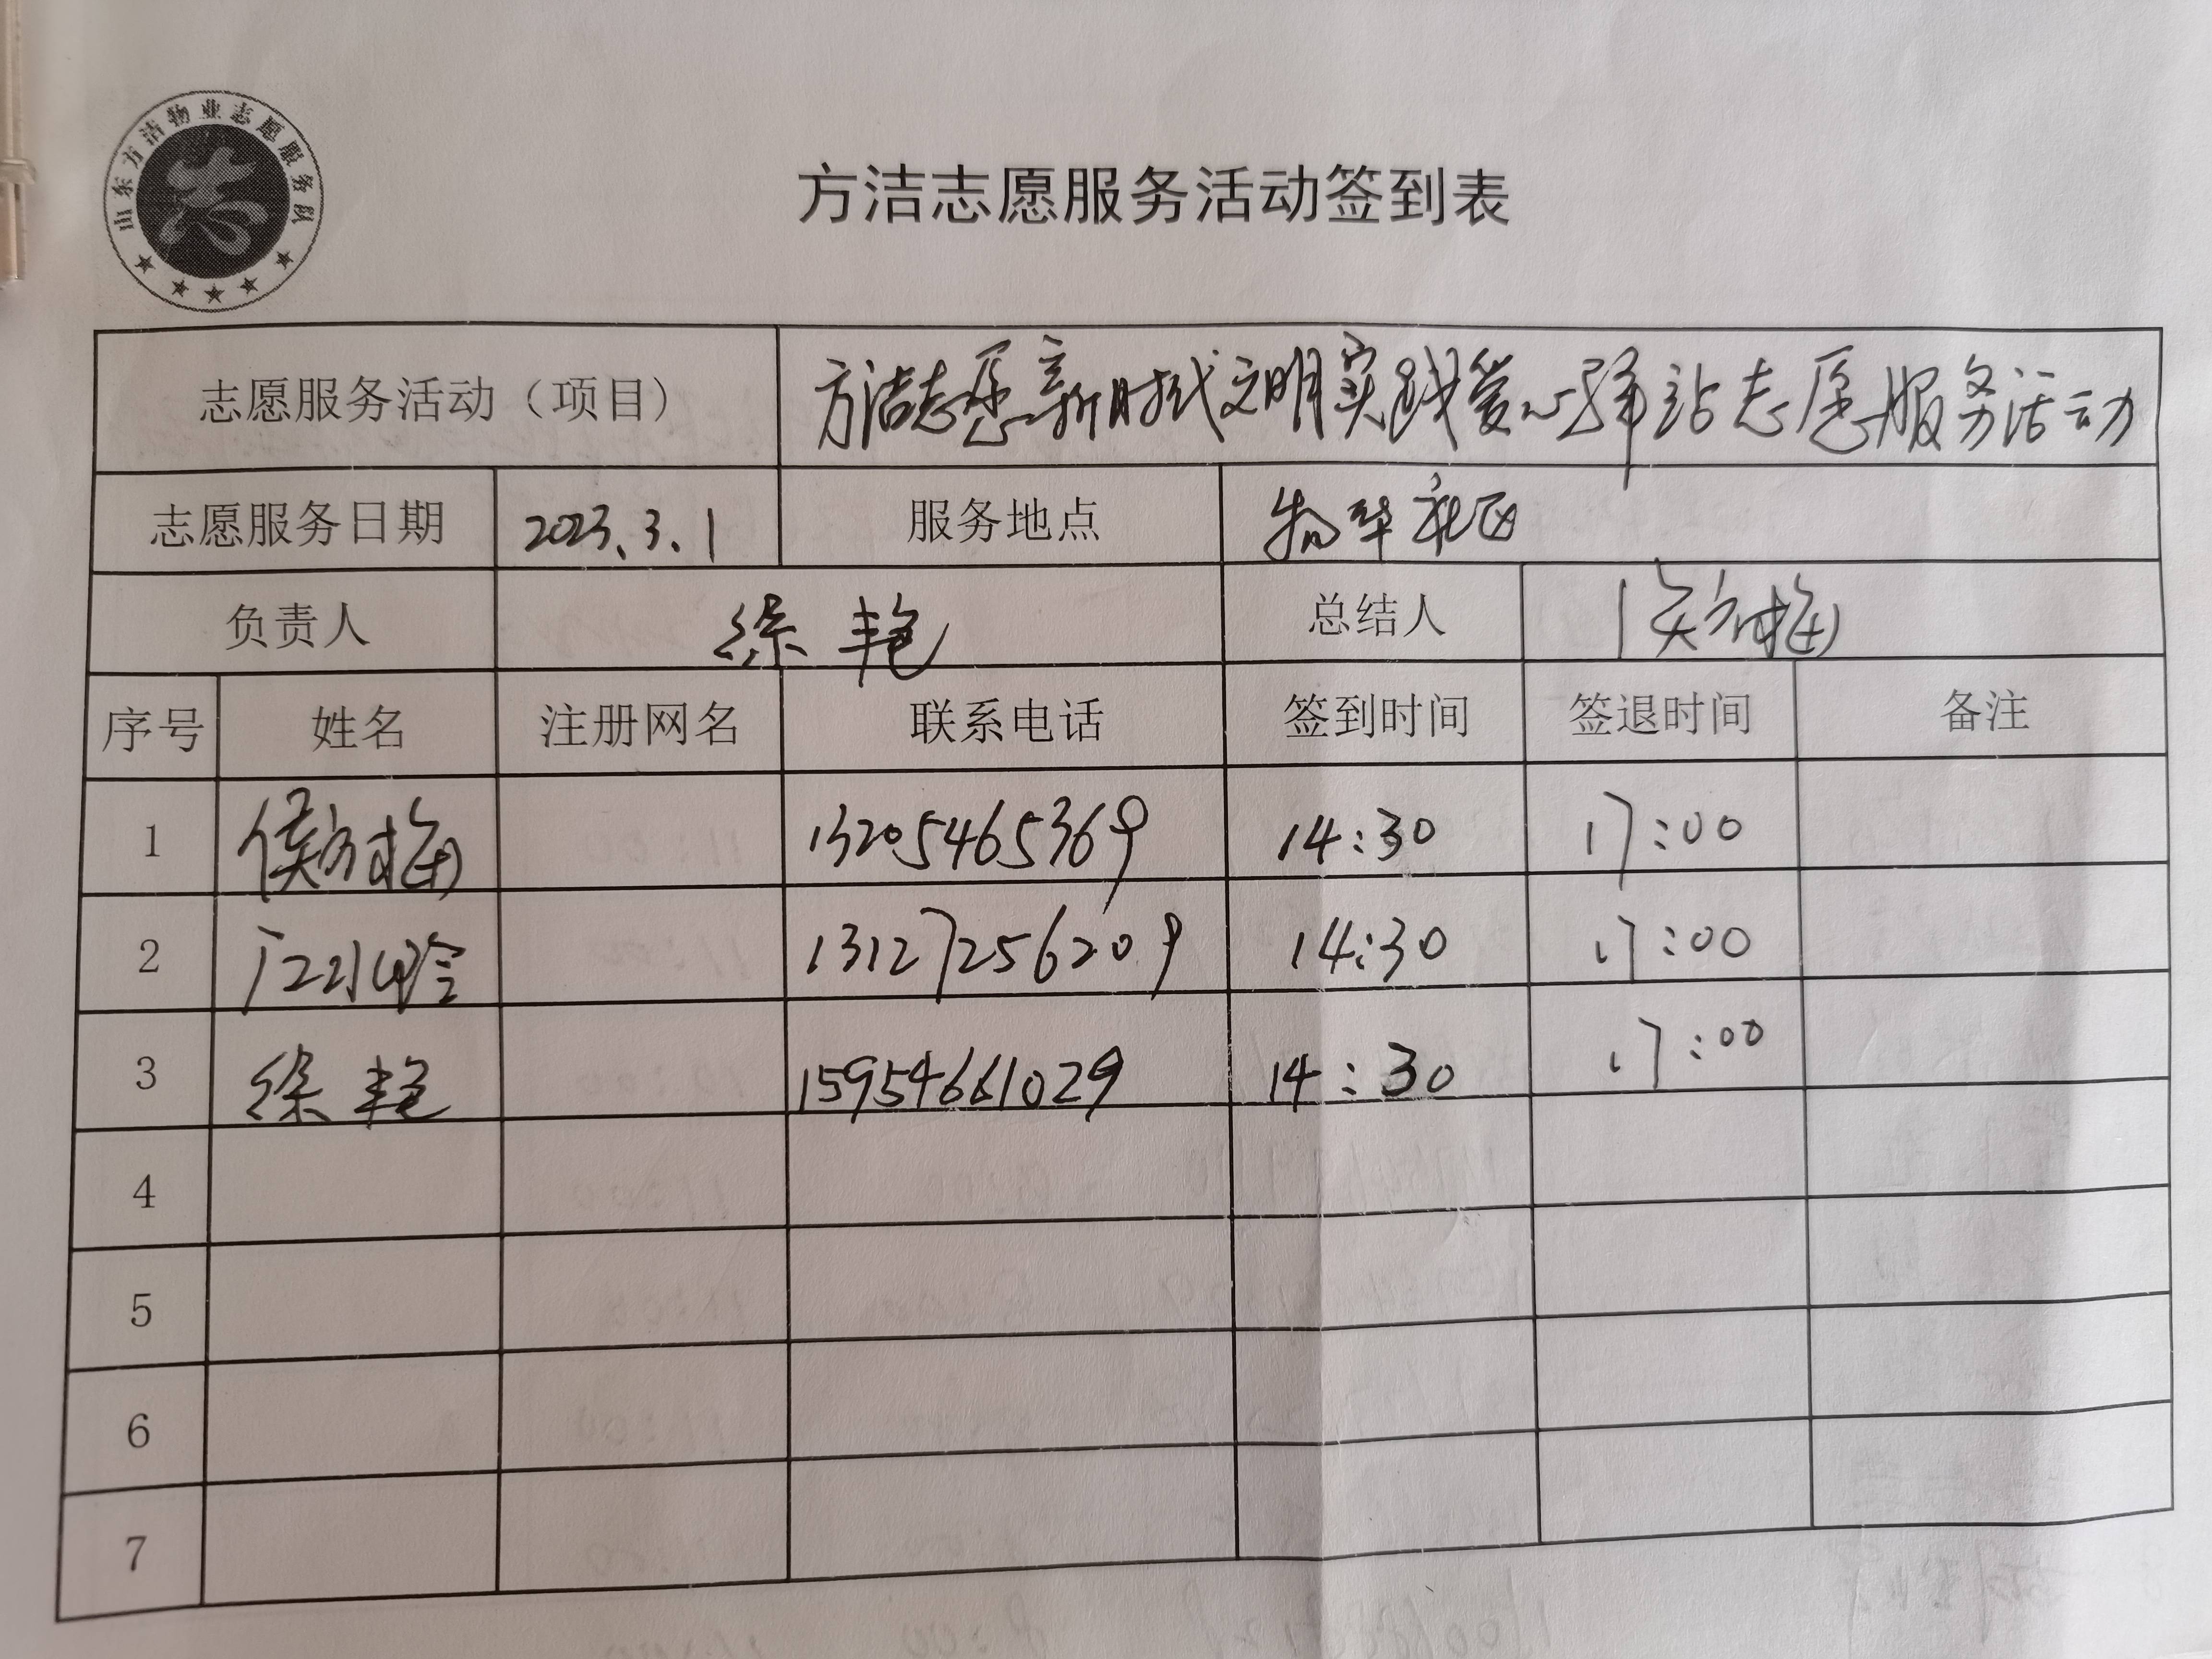 山东方洁物业志愿服务队
方洁志愿服务活动签到表
志愿服务活动（项目） 方洁志愿新时代文明实践爱心驿站志愿服务活动
志愿服务日期 2023.3.1 服务地点 物华社区
负责人 徐艳 总结人 侯方梅
序号 姓名 注册网名 联系电话 签到时间 签退时间 备注
1 侯方梅 13205465369 14:30 17:00
2 13127256209 14:30 17:00
3 徐艳 15954661029 14:30 17:00
4
5
6
7